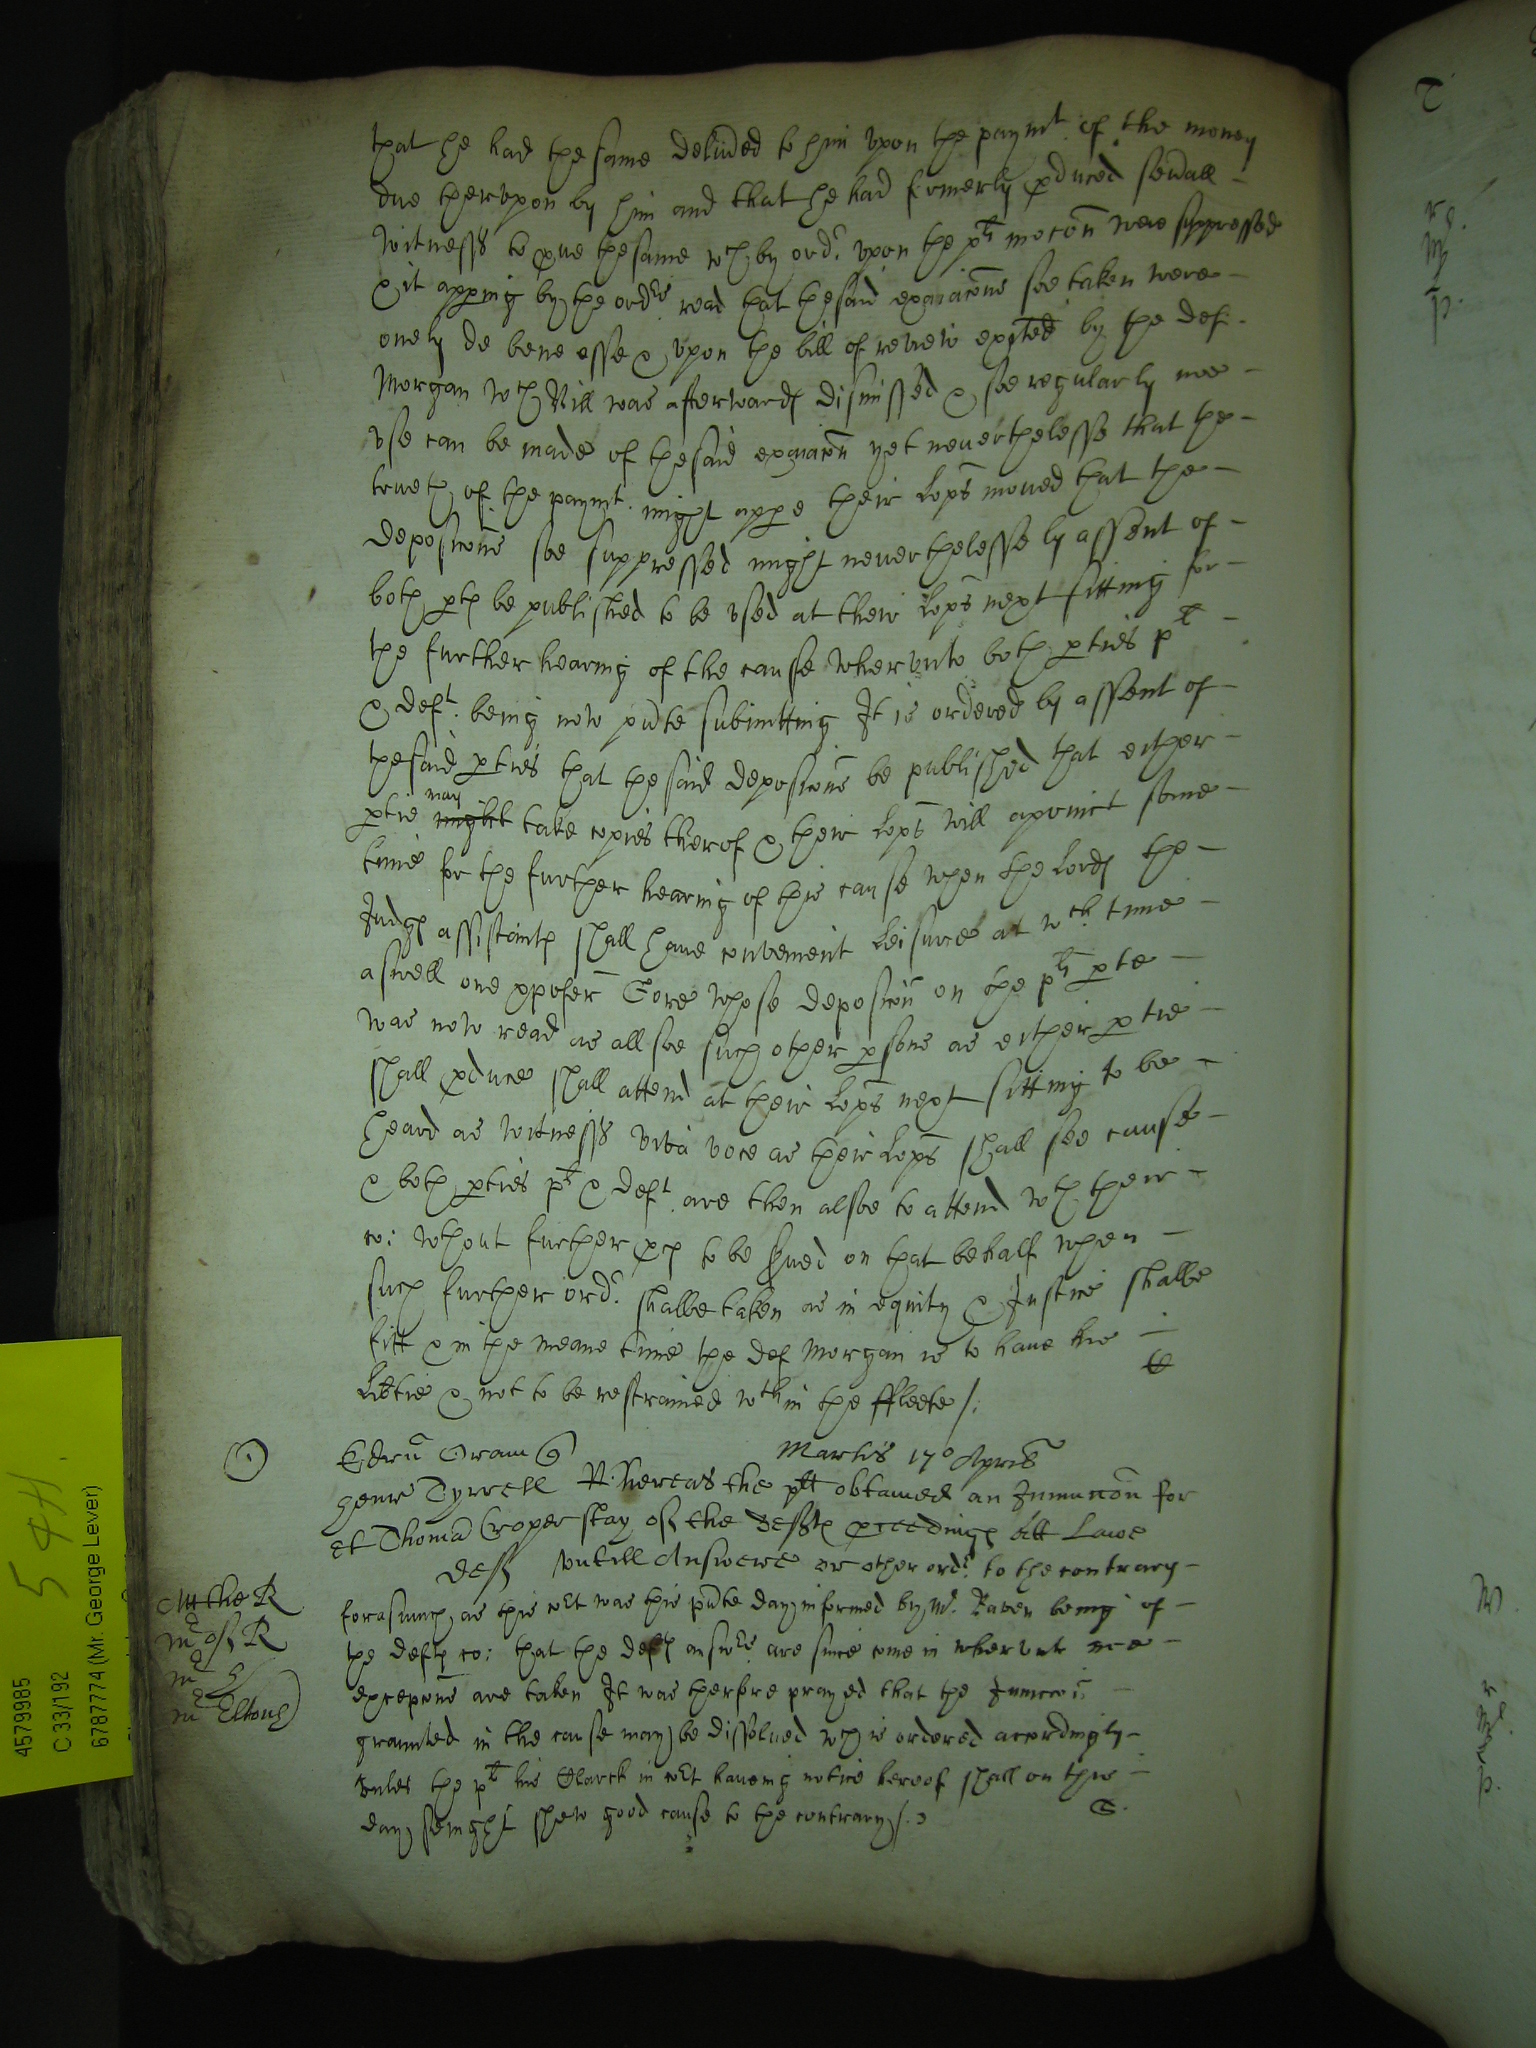 that he had the same deliũed to him vpon the paymt. of the money
due thervpon by him and that he had formerly pduced seũall -
witnesss to pue the same wch by ordr. vpon the plts mocõn were suppressed
& it apping by the ordrs. read that the said exaiacõns soe taken were -
onely de bene esse & vpon the bill of review exhited by the def. -
Morgan wch Bill was afterwards dismissed & soe regularly noe -
vse can be made of the said exaiacõn yet neuerthelesse that the -
trueth of the paymt. might appe their Lops moued that the -
deposicõns soe suppressed might neuerthelesse by assent of -
both pts be published to be vsed at their Lops next sitting for -
the further hearing of the cause wherunto both pties plt -
& deft. being now pñte submitting It is ordered by assent of -
the said pties that the said deposicõns be published that either -
ptie might may take copies therof & their Lops will apoinct some -
time for the further hearing of this cause when the Lords the -
Judgs assistants shall haue convenient leisure at wch time -
aswell one Gore whose deposicõn on the plts pte -
was now read as all soe such other psons as either ptie -
shall pduce shall attend at their Lops next sitting to be -
heard as witnesss viva voce as their Lops shall see cause -
& both pties plt & deft. are then alsoe to attend wth their -
co: wthout further pcs to be sued on that behalf when -
such further ordr. shalbe taken as in equity & Justice shalbe
fitt & in the meane time the def Morgan is to haue his -
Libtie & not to be restrained wthin the ffleete /.
Edrũ Oram Martis 17o Apris
Henr Tyrrell Whereas the plt obtained an Iniunccõn for
et Thoma Croper stay of the defts pceedings att Lawe
deff vntill Answere or other ordr. to the contrary -
forasmuch as this cort was this pñte day informed by Mr. Raven being of -
the defts co: that the defts answrs. are since come in wherunto noe -
excepcõns are taken It was therfore prayed that the Iniuccõn -
graunted in the cause may be dissolued wch is ordered accordingly -
vnles the plt his Clarck in cort haueing notice hereof shall on this -
day senight shew good cause to the contrary /.
Mr the R
mr of R
mr
mr
4579985
C 33/192
6787774 (Mr. George Lever)